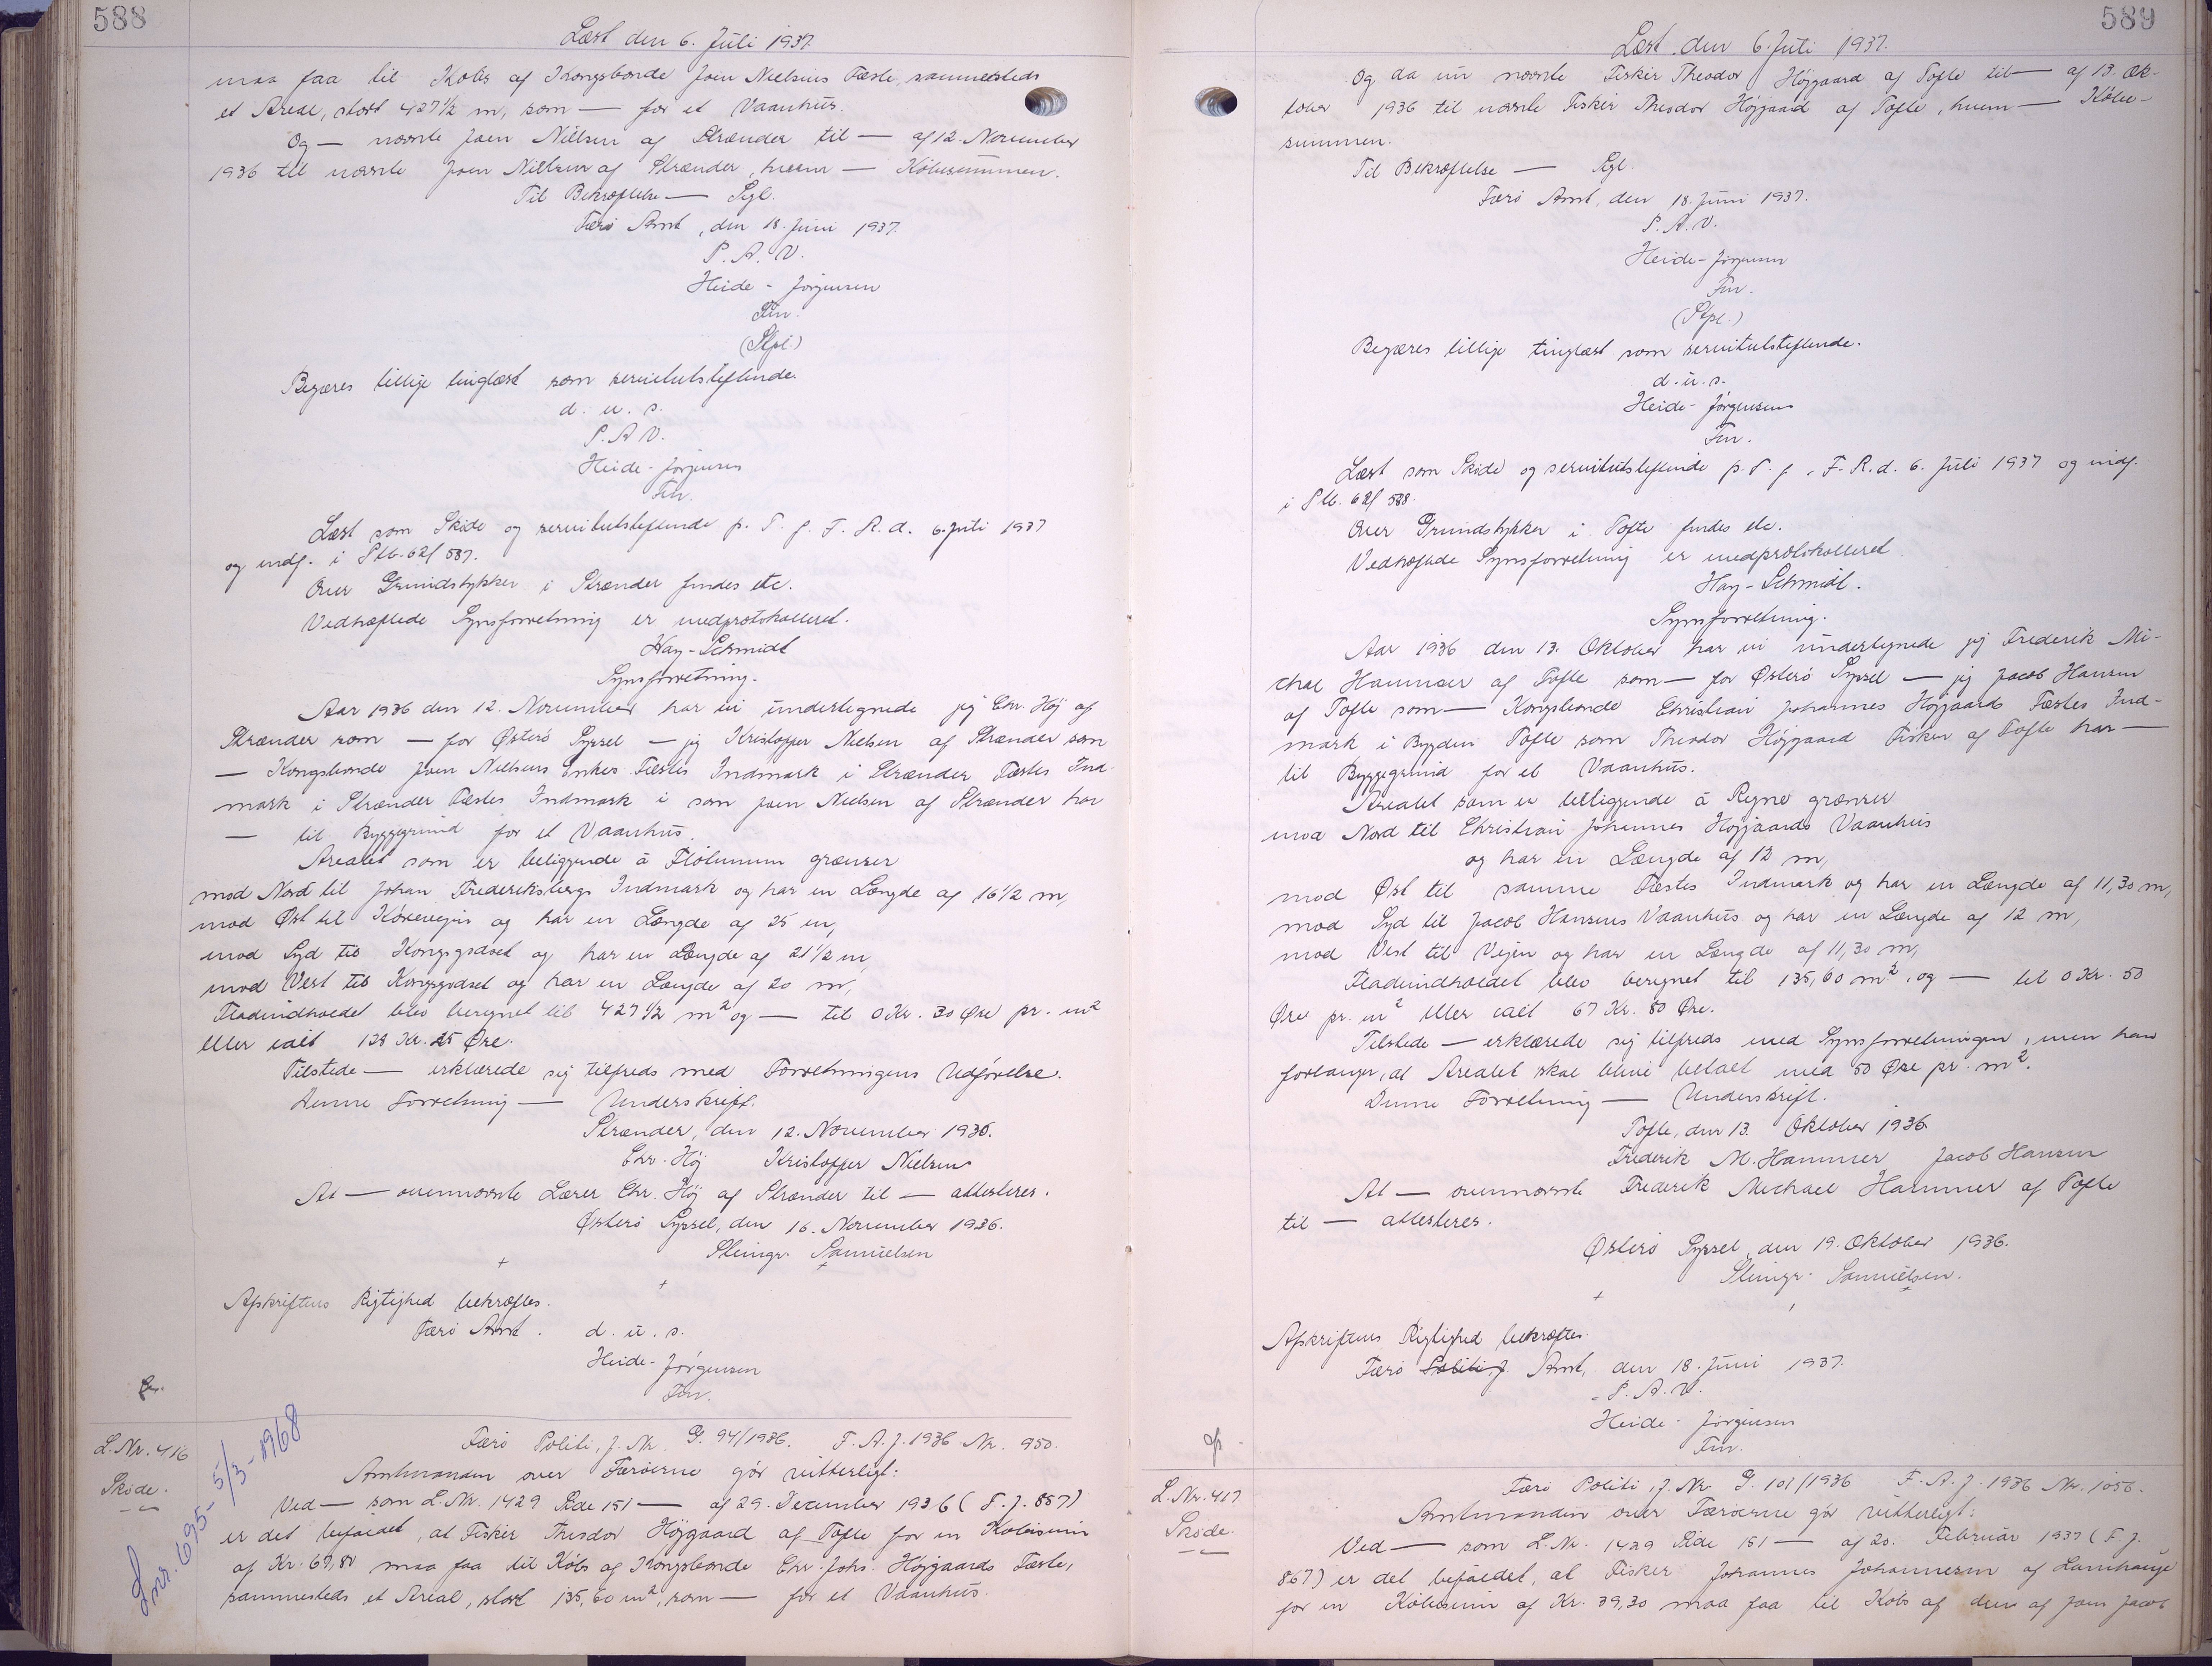 588
Læst den 6. Juli 1937.
maa faa til Købs af Kongsbonde Joen Nielsens Fæste, sammesteds
et Areal, stort 427 1/2 m, som — for et Vaanhus.
Og — nævnte Joen Nielsen af Strænder til — af 12. November
1936 til nævnte Joen Nielsen af Strænder, hvem — Købesummen.
Til Bekræftelse — Sgl.
Færø Amt, den 18. Juni 1937.
P. A. V.
Heide - Jørgensen
Fm.
(Stpl.)
Begæres tillige tinglæst som servitutstiftende.
d. u. s.
P. A V.
Heide - Jørgensen
Fm.
Læst som Skøde og servitutstiftende p. T. f. F. R. d. 6. Juli 1937
og indf. i S Pb. 62/ 587.
Over Grundstykker i Strænder findes etc.
Vedhæftede Synsforretning er medprotokolleret.
Hay - Schmidt
Synsforretning.
Aar 1936 den 12. November har vi undertegnede jeg Chr. Høj af
Strænder som — for Østerø Syssel — jeg Kristoffer Nielsen af Strænder som
— Kongsbonde Joen Nielsens Enkes Fæstes Indmark i Strænder Fæstes Ind-
mark i Strænder Fæstes Indmark i som Joen Nielsen af Strænder har
— til Byggegrund for et Vaanhus.
Arealet som er beliggende á Flötunum grænser
mod Nord til Johan Frederiksbergs Indmark og har en Længde af 16 1/2 m,
mod Øst til Kørevejen og har en Længde af 25 m,
mod Syd til Kongsgodset og har en Længde af 21 1/2 m,
mod Vest til Kongsgodset og har en Længde af 20 m,
Fladeindholdet blev beregnet til 427 1/2 m² og — til 0 Kr. 30 Øre pr. m²
eller ialt 128 Kr. 25 Øre.
Tilstede — erklærede sig tilfreds med Forretningens Udførelse.
Denne Forretning — Underskrift.
Strænder, den 12. November 1936.
Chr. Høj Kristoffer Nielsen
At — ovennævnte Lærer Chr. Høj af Strænder til — attesteres.
Østerø Syssel, den 16. November 1936.
Slengr. Samuelsen
Afskriftens Rigtighed bekræftes.
Færø Amt. d. u. s.
Heide - Jørgensen
Fm.
L. Nr. 416
Skøde.
Lnr. 695 - 5/3 - 1968
Færø Politi, J. Nr. G. 94/1936. F. A. J. 1936 Nr. 950.
Amtmanden over Færøerne gør vitterligt:
Ved — som L. Nr. 1429 Side 151 — af 29. December 1936 (F. J. 857)
er det bifaldet, at Fisker Theodor Højgaard af Tofte for en Købesum
af Kr. 67,80 maa faa til Købs af Kongsbonde Chr. Johs. Højgaards Fæste,
sammesteds et Areal, stort 135,60 m², som — for et Vaanhus.
589
Læst den 6. Juli 1937.
Og da nu nævnte Fisker Theodor Højgaard af Tofte til — af 13. Ok-
tober 1936 til nævnte Fisker Theodor Højgaard af Tofte, hvem — Købe-
summen.
Til Bekræftelse — Sgl.
Færø Amt, den 18. Juni 1937.
P. A. V.
Heide - Jørgensen
Fm.
(Stpl.)
Begæres tillige tinglæst som servitutstiftende.
d. u. s.
Heide - Jørgensen
Fm.
Læst som Skøde og servitutstiftende p. T. f. F. R. d. 6. Juli 1937 og indf.
i S Pb. 62/ 588.
Over Grundstykker i Tofte findes etc.
Vedhæftede Synsforretning er medprotokolleret
Hay - Schmidt.
Synsforretning.
Aar 1936 den 13. Oktober har vi undertegnede jeg Frederik Mi-
chal Hammer af Tofte som — for Østerø Syssel — jeg Jacob Hansen
af Tofte som — Kongsbonde Christian Johannes Højgaards Fæstes Ind-
mark i Bygden Tofte som Theodor Højgaard Fisker af Tofte har —
til Byggegrund for et Vaanhus.
Arealet som er beliggende á Ryne grænser
mod Nord til Christian Johannes Højgaards Vaanhus
og har en Længde af 12 m,
mod Øst til samme Fæstes Indmark og har en Længde af 11,30 m,
mod Syd til Jacob Hansens Vaanhus og har en Længde af 12 m,
mod Vest til Vejen og har en Længde af 11,30 m,
Fladeindholdet blev beregnet til 135,60 m², og — til 0 Kr. 50
Øre pr. m² eller ialt 67 Kr. 80 Øre.
Tilstede — erklærede sig tilfreds med Synsforretningen, men han
forlanger, at Arealet skal blive betalt med 50 Øre pr. m².
Denne Forretning — Underskrift.
Tofte, den 13. Oktober 1936
Frederik M. Hammer Jacob Hansen
At — ovennævnte Frederik Michael Hammer af Tofte
til — attesteres.
Østerø Syssel, den 19. Oktober 1936.
Slengr. Samuelsen.
Afskriftens Rigtighed bekræftes.
Færø Amt, den 18. Juni 1937.
P. A. V.
Heide - Jørgensen
Fm.
L. Nr. 417
Skøde.
Færø Politi, J. Nr. G. 101/1936 F. A. J. 1936 Nr. 1056.
Amtmanden over Færøerne gør vitterligt:
Ved — som L. Nr. 1429 Side 151 — af 20. Februar 1937 (F. J.
867) er det bifaldet, at Fisker Johannes Johannesen af Lamhauge
for en Købesum af Kr. 39,30 maa faa til Købs af den af Joen Jacob